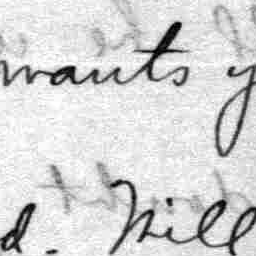 wants y
d. Will